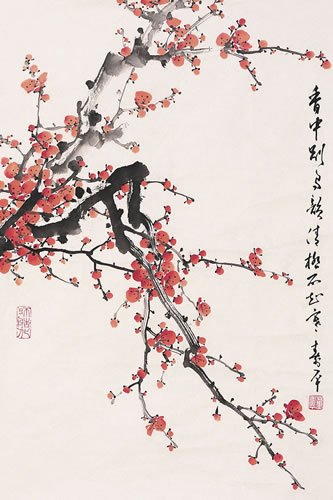 香中别有韵清极不知寒
寿平